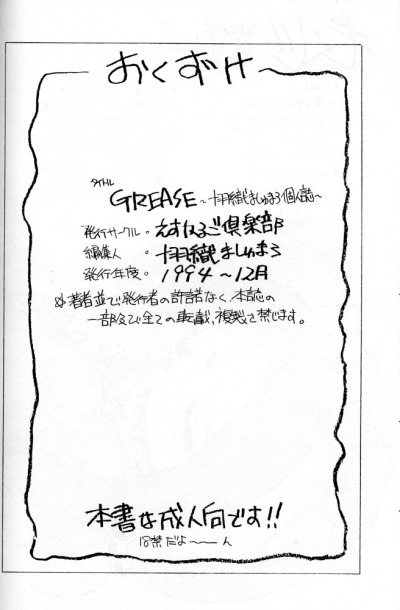 おくずけ
タイトル
GREASE 〜羽織ましゅまろ個人誌〜
発行サークル。えすねるご倶楽部
編集人。羽織ましゅまろ
発行年度。1994〜12月
著者並び発行者の許諾なく本誌の
一部及び全ての転載、複製を禁じます。
本書は成人向です!!
18禁だよ〜〜ん